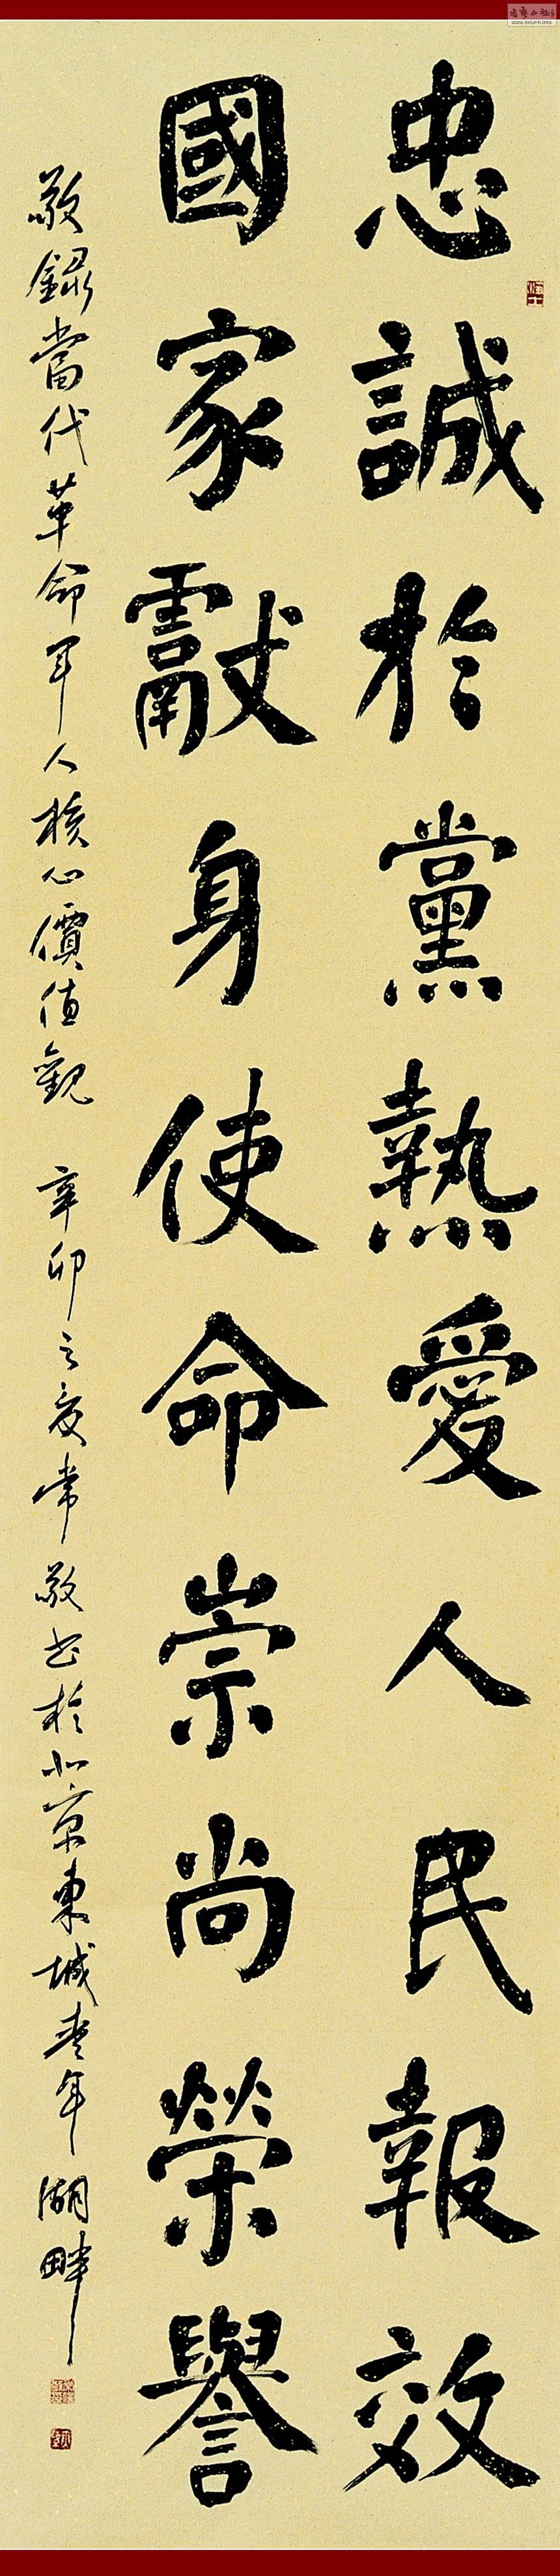 忠誠於黨熱愛人民報效
國家獻身使命崇尚榮譽
敬録當代革命軍人核心價值觀 辛卯之夏常敬書於北京東城青年湖畔